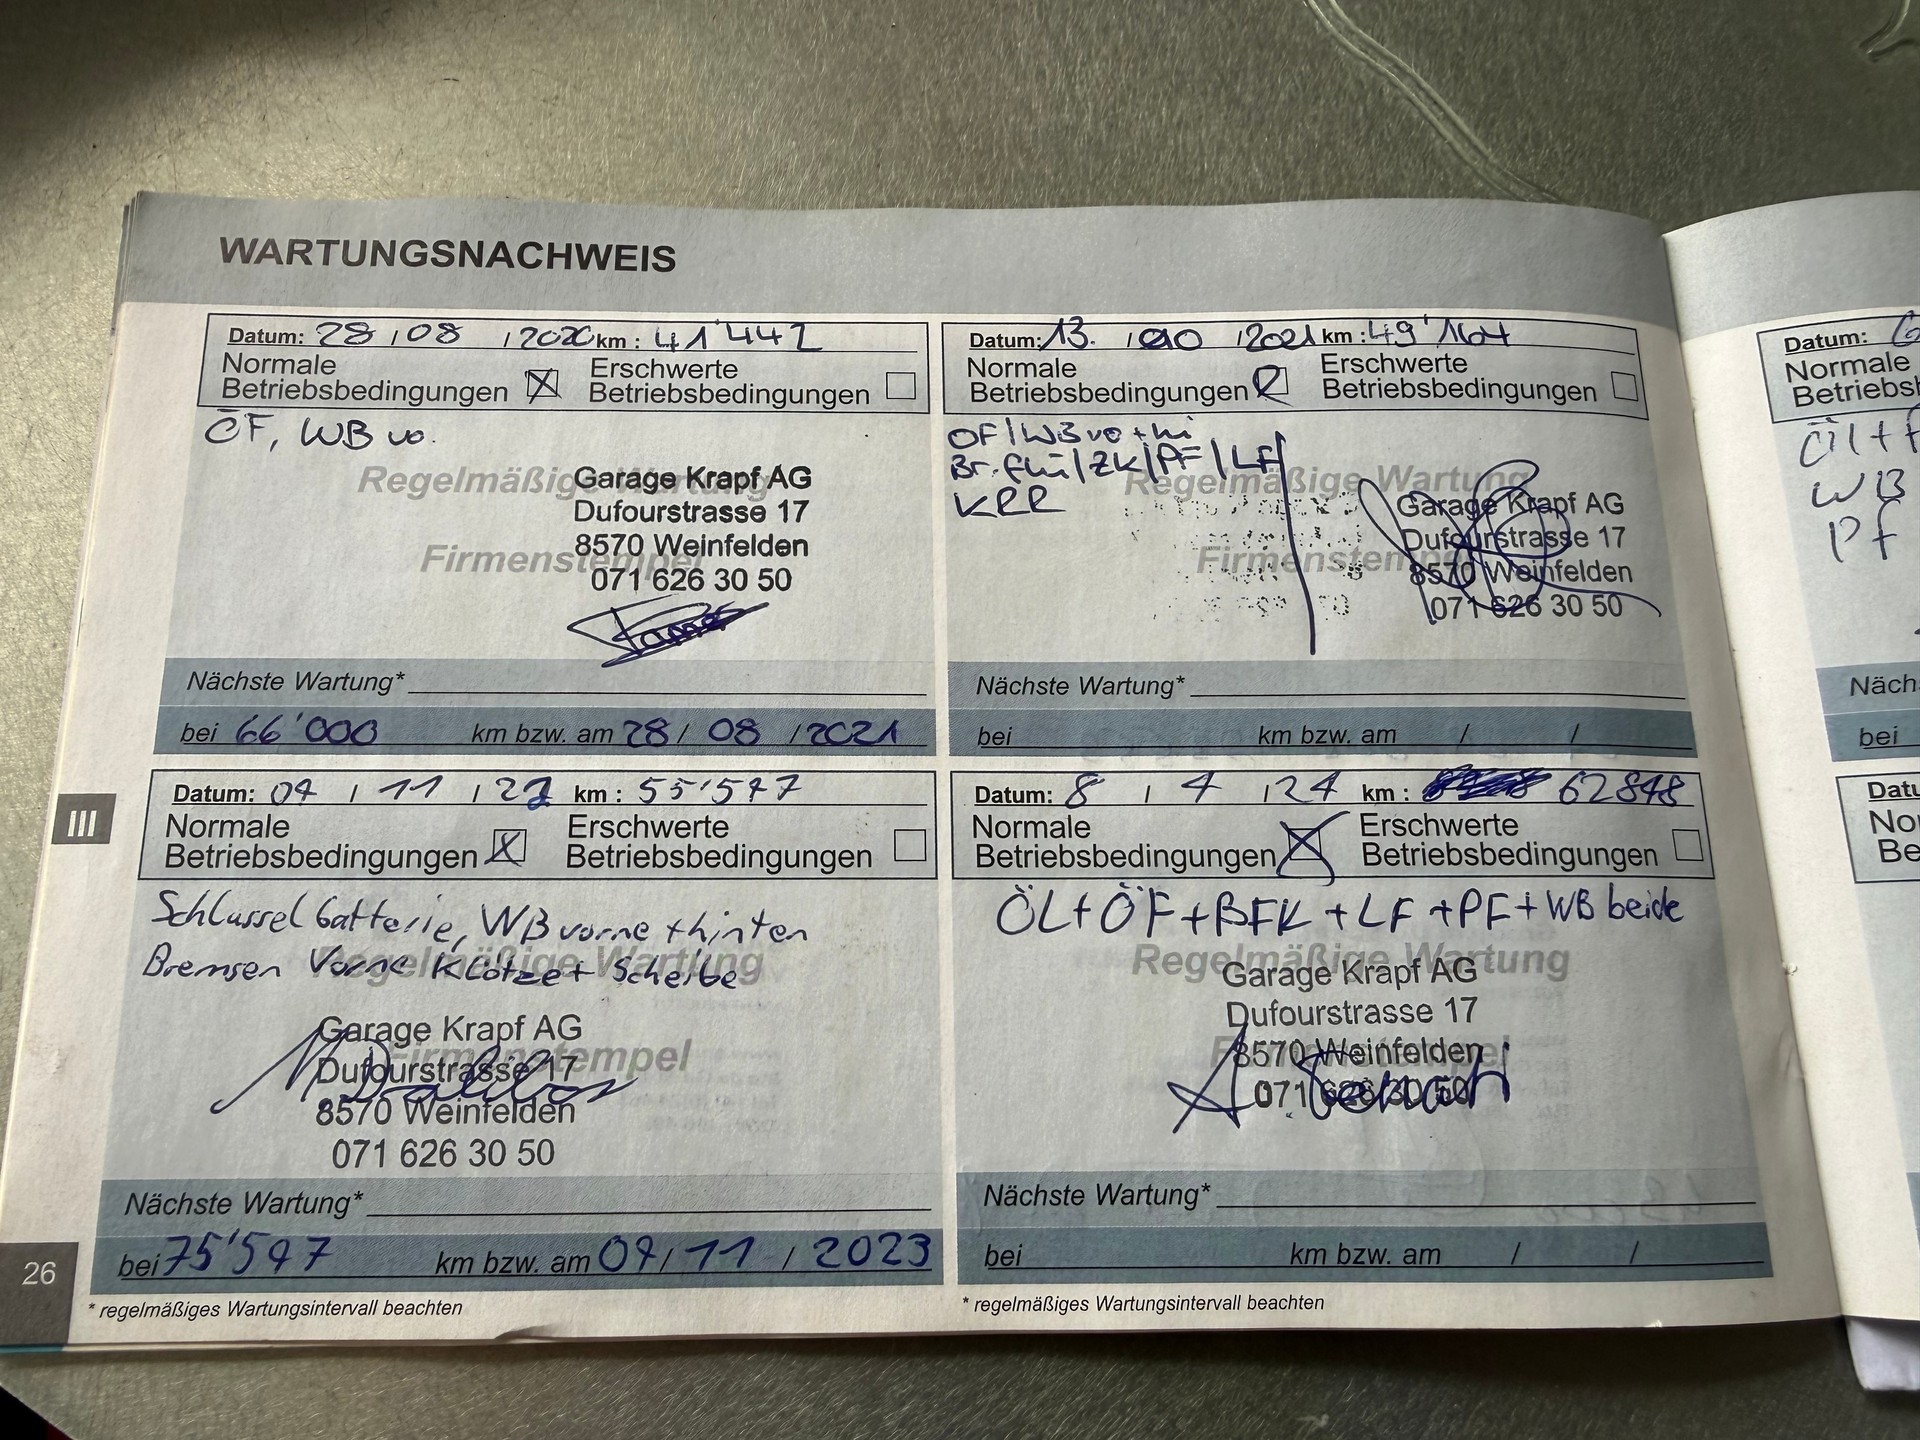 WARTUNGSNACHWEIS
Datum: 28 / 08 / 2020 km : 41'442
Normale Betriebsbedingungen ☒ Erschwerte Betriebsbedingungen ☐
ÖF, WB vo.
Regelmäßige Wartung
Firmenstempel
Garage Krapf AG
Dufourstrasse 17
8570 Weinfelden
071 626 30 50
Nächste Wartung*
bei 66'000 km bzw. am 28 / 08 / 2021
Datum: 13. / 10 / 2021 km : 49'164
Normale Betriebsbedingungen ☒ Erschwerte Betriebsbedingungen ☐
ÖF / WB vo + hi
Br. flü / ZK / PF / LF
KRR
Regelmäßige Wartung
Firmenstempel
Garage Krapf AG
Dufourstrasse 17
8570 Weinfelden
071 626 30 50
Nächste Wartung*
bei km bzw. am / /
Datum: 07 / 11 / 22 km : 55'577
Normale Betriebsbedingungen ☒ Erschwerte Betriebsbedingungen ☐
Schlüssel batterie, WB vorne + hinten
Bremsen Vorne Klötze + Scheibe
Regelmäßige Wartung
Firmenstempel
Garage Krapf AG
Dufourstrasse 17
8570 Weinfelden
071 626 30 50
Nächste Wartung*
bei 75'577 km bzw. am 07 / 11 / 2023
* regelmäßiges Wartungsintervall beachten
Datum: 8 / 4 / 24 km : 62848
Normale Betriebsbedingungen ☒ Erschwerte Betriebsbedingungen ☐
ÖL + ÖF + BFK + LF + PF + WB beide
Regelmäßige Wartung
Garage Krapf AG
Dufourstrasse 17
8570 Weinfelden
071 626 30 50
Nächste Wartung*
bei km bzw. am / /
* regelmäßiges Wartungsintervall beachten
III
26
Datum:
Normale
WB
PF
bei